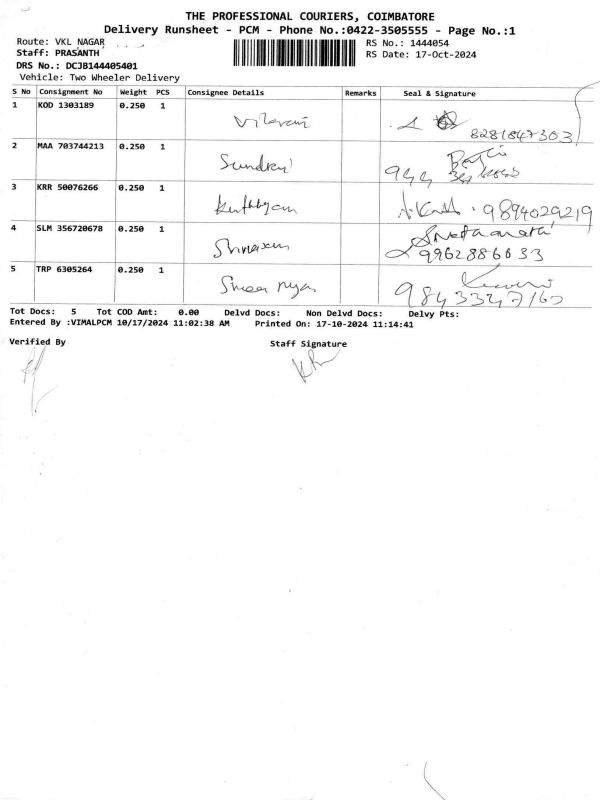 THE PROFESSIONAL COURIERS, COIMBATORE
Delivery Runsheet - PCM - Phone No.:0422-3505555 - Page No.:1
Route: VKL NAGAR
RS No.: 1444054
Staff: PRASANTH
RS Date: 17-Oct-2024
DRS No.: DCJB144405401
Vehicle: Two Wheeler Delivery
S No Consignment No Weight PCS Consignee Details Remarks Seal & Signature
1 KOD 1303189 0.250 1
8281847303
2 MAA 703744213 0.250 1
3 KRR 50076266 0.250 1 9894029219
4 SLM 356720678 0.250 1
9962886033
5 TRP 6305264 0.250 1
Tot Docs: 5 Tot COD Amt: 0.00 Delvd Docs: Non Delvd Docs: Delvy Pts:
Entered By :VIMALPCM 10/17/2024 11:02:38 AM Printed On: 17-10-2024 11:14:41
Verified By Staff Signature